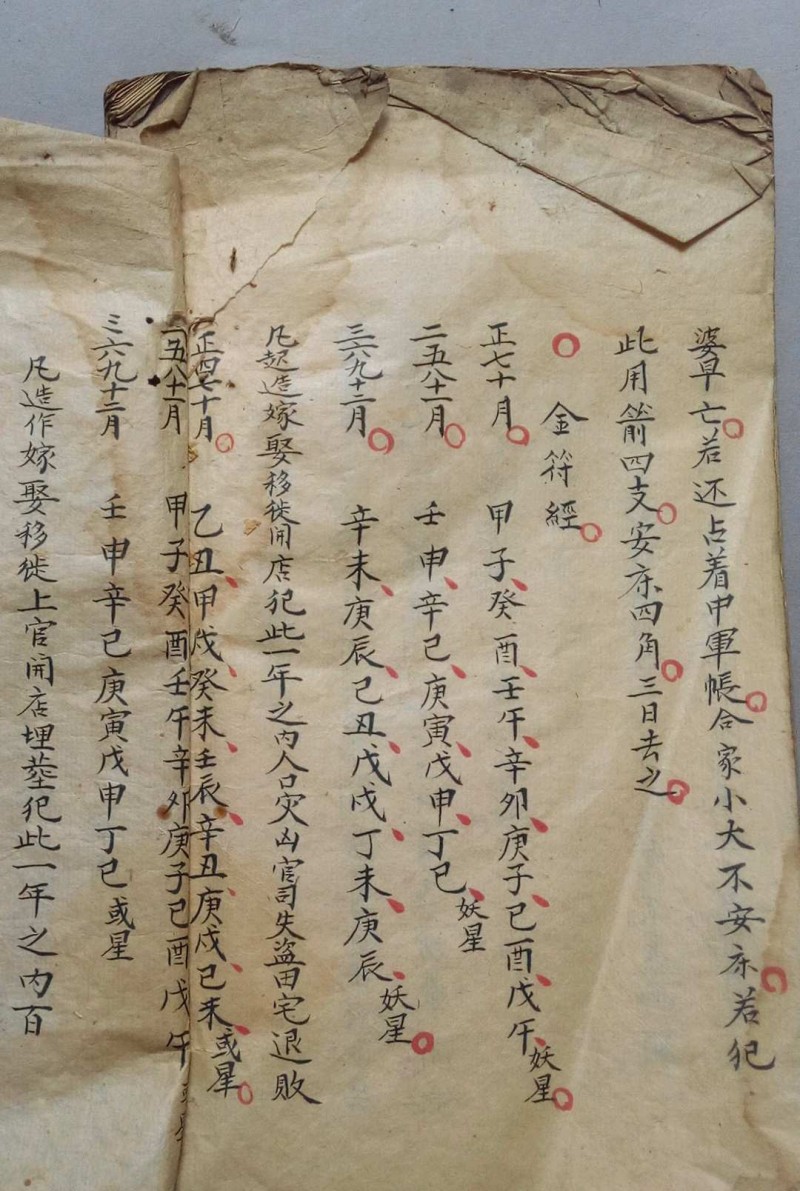 婆早亡若还占着中軍帳合家小大不安床若犯
此用箭四支安床四角三日去之
金符經
正七十月 甲子癸酉壬午辛卯庚子己酉戊午妖星
二五八十一月 壬申辛巳庚寅戊申丁巳妖星
三六八九十二月 辛未庚辰己丑戊戌丁未庚辰妖星
凡起造嫁娶移徙開店犯此一年之內人口灾凶官司失盜田宅退敗
正四七十月 乙丑甲戌癸未壬辰辛丑庚戌己未或星
二五八十一月 甲子癸酉壬午辛卯庚子己酉戊午
三六九十二月 壬申辛巳庚寅戊申丁巳或星
凡造作嫁娶移徙上官開店埋葬犯此一年之內百